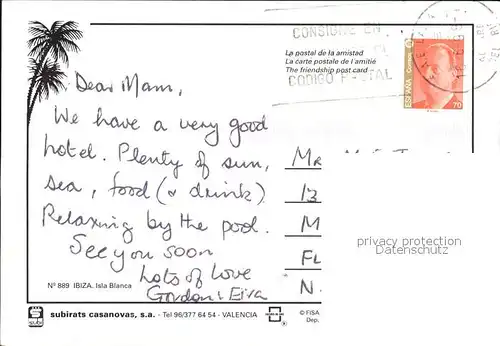 CONSIGNE EN
CODIGO POSTAL
La postal de la amistad
La carte postale de l'amitié
The friendship post card
ESPAÑA Correos
70
Dear Mam,
We have a very good
hotel. Plenty of sun,
sea, food (& drink)
Relaxing by the pool.
See you soon
Lots of love
Gordon &
M
13
M
FL
N.
privacy protection
Datenschutz
Nº 889 IBIZA. Isla Blanca
subi
subirats casanovas, s.a. - Tel 96/377 64 54 - VALENCIA
® © FISA
Dep.